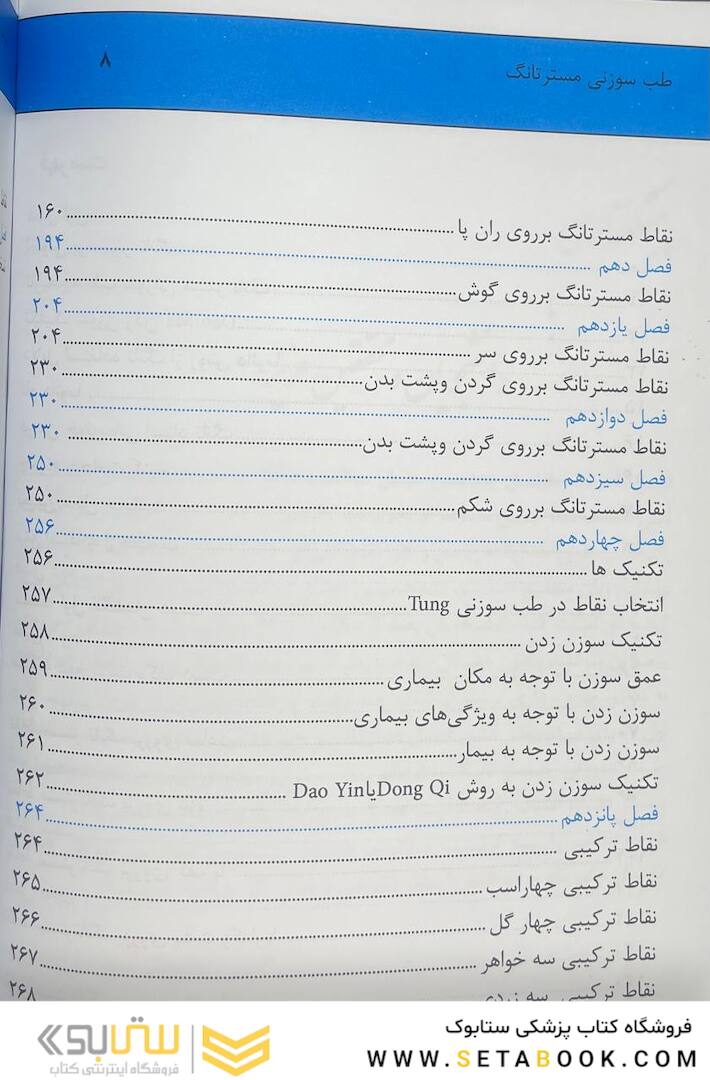 طب سوزنی مسترتانگ ۸
نقاط مسترتانگ برروی ران پا ۱۶۰
فصل دهم ۱۹۴
نقاط مسترتانگ برروی گوش ۱۹۴
فصل یازدهم ۲۰۴
نقاط مسترتانگ برروی سر ۲۰۴
نقاط مسترتانگ برروی گردن وپشت بدن ۲۳۰
فصل دوازدهم ۲۳۰
نقاط مسترتانگ برروی گردن وپشت بدن ۲۳۰
فصل سیزدهم ۲۵۰
نقاط مسترتانگ برروی شکم ۲۵۰
فصل چهاردهم ۲۵۶
تکنیک ها ۲۵۶
انتخاب نقاط در طب سوزنی Tung ۲۵۷
تکنیک سوزن زدن ۲۵۸
عمق سوزن با توجه به مکان بیماری ۲۵۹
سوزن زدن با توجه به ویژگی‌های بیماری ۲۶۰
سوزن زدن با توجه به بیمار ۲۶۱
تکنیک سوزن زدن به روش Dong Qiیا Dao Yin ۲۶۲
فصل پانزدهم ۲۶۴
نقاط ترکیبی ۲۶۴
نقاط ترکیبی چهاراسب ۲۶۵
نقاط ترکیبی چهار گل ۲۶۶
نقاط ترکیبی سه خواهر ۲۶۷
نقاط ترکیبی سه زردی ۲۶۸
فروشگاه کتاب پزشکی ستابوک
WWW.SETABOOK.COM
ستابوک
فروشگاه اینترنتی کتاب